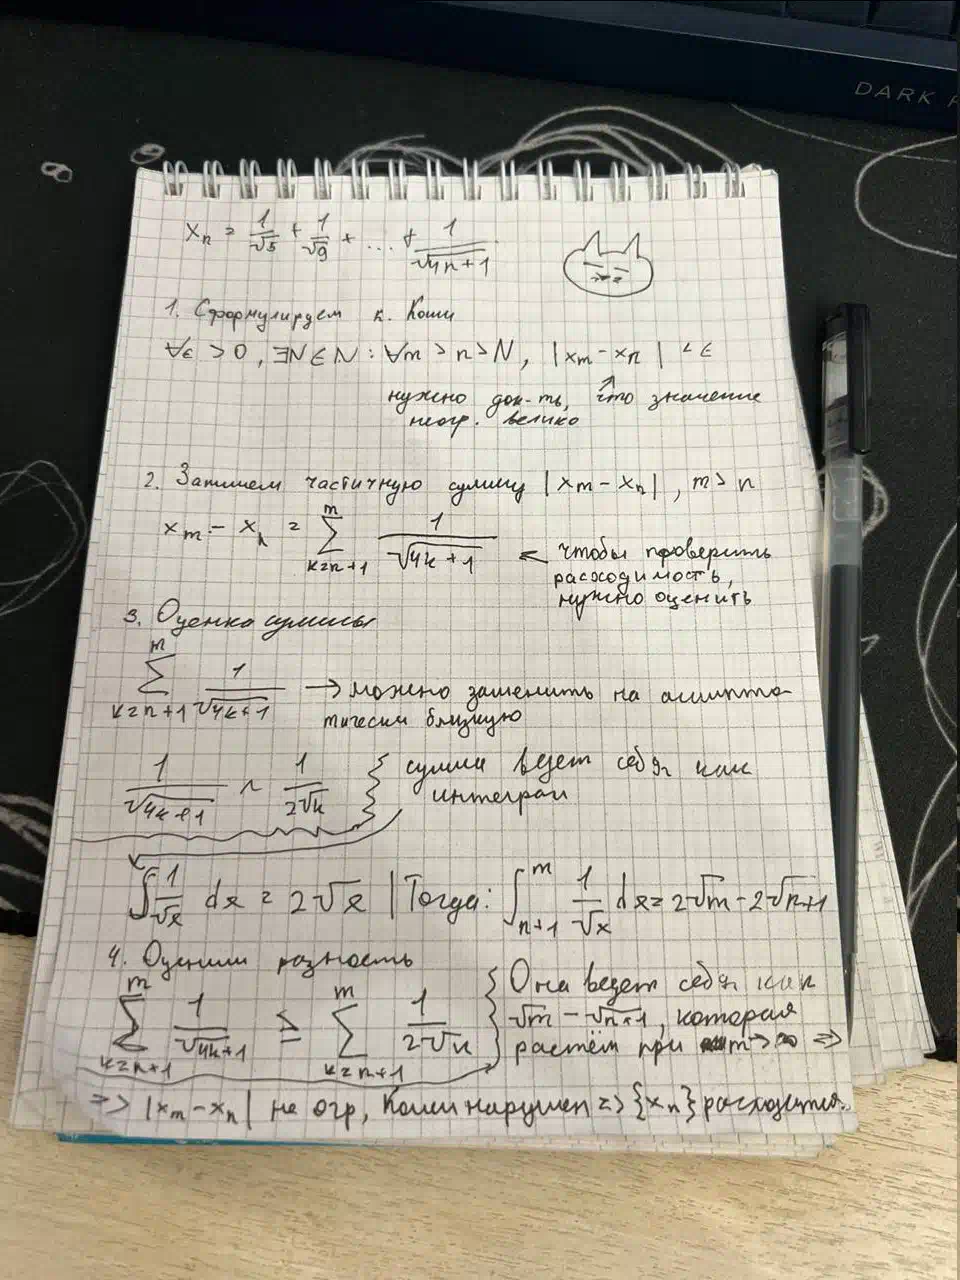 DARK
xₙ = 1/√5 + 1/√9 + ... + 1/√(4n+1)
1. Сформулируем к. Коши
∀ε > 0, ∃N ∈ ℕ : ∀m > n > N, |xₘ - xₙ| < ε
нужно док-ть, что значение
неогр. велико
2. Запишем частичную сумму |xₘ - xₙ|, m > n
xₘ - xₙ = ∑_{k=n+1}^{m} 1/√(4k+1) ← чтобы проверить
расходимость,
нужно оценить
3. Оценка суммы
∑_{k=n+1}^{m} 1/√(4k+1) → можно заменить на асимпто-
тически близкую
1/√(4k+1) ~ 1/(2√k) } сумма ведет себя как
интеграл
∫ 1/√x dx = 2√x | Тогда: ∫_{n+1}^{m} 1/√x dx = 2√m - 2√(n+1)
4. Оценили разность
∑_{k=n+1}^{m} 1/√(4k+1) ≥ ∑_{k=n+1}^{m} 1/(2√k) { Она ведет себя как
√m - √(n+1), которая
растёт при m → ∞ ⇒
⇒ |xₘ - xₙ| не огр, Коши нарушен ⇒ {xₙ} расходится.